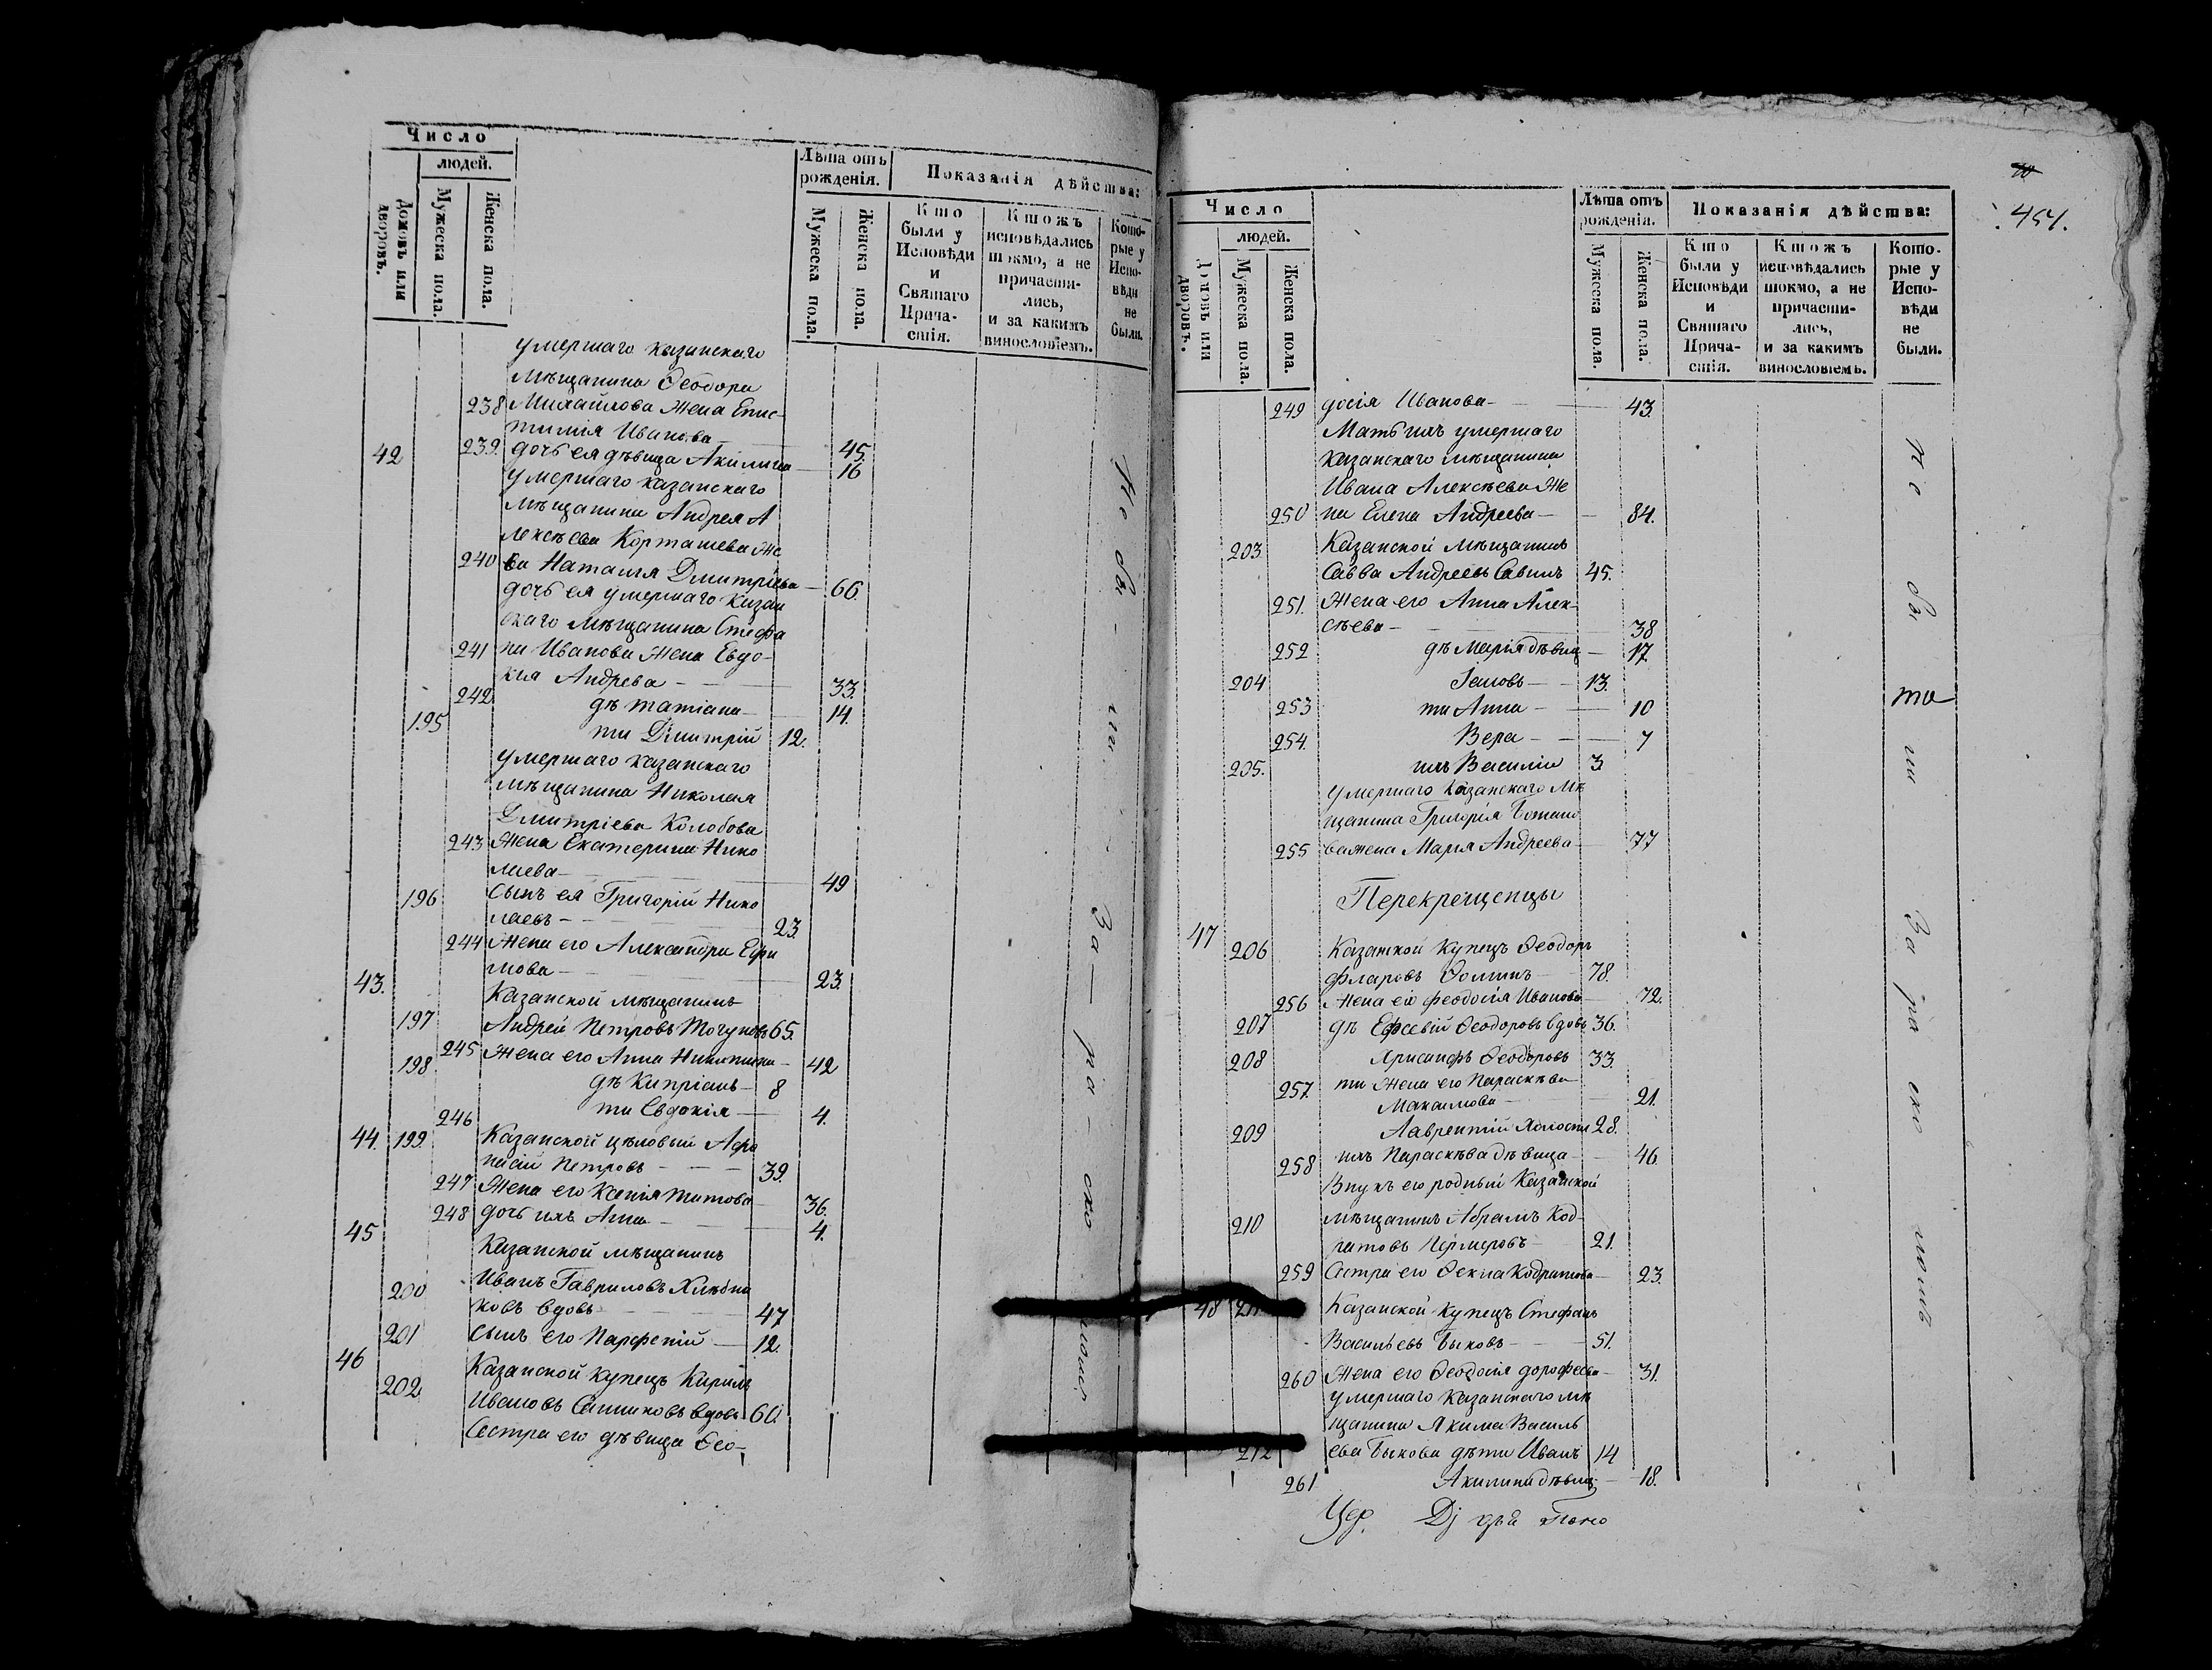 Число
людей.
Домовъ или дворовъ.
Мужеска пола.
Женска пола.
Лѣта отъ рожденія.
Мужеска пола.
Женска пола.
Показанія дѣйства:
Кто были у Исповѣди и Святаго Прича-стія.
Ктожъ исповѣдались токмо, а не причасти-лись, и за какимъ винословіемъ.
Кото-рые у Испо-вѣди не были.
умершаго казанскаго
мѣщанина Ѳеодора
238 Михайлова жена Епис-
тимія Иванова 45.
42 239. дочь ея дѣвица Акилина 16
умершаго казанскаго
мѣщанина Андрея А
лексѣева Корташева же
240 на Наталія Дмитріева 66.
дочь ея умершаго казан
скаго мѣщанина Стефа
241 на Иванова жена Евдо-
кія Андрева 33.
242 дѣ татіана 14.
195 ти Димитрій 12.
умершаго казанскаго
мѣщанина Николая
Дмитріева Колобова
243 жена Екатерина Нико
лаева 49
196 Сынъ ея Григорій Нико
лаевъ 23.
244 жена его Александра Ефи
мова 23.
43. Казанской мѣщанинъ
197 Андрей Петровъ 65.
245 жена его Анна Никитина 42
198 дѣ Кипріанъ 8
246 ти Евдокія 4.
44. 199. Казанской цѣховый Афо
насій Петровъ 39.
247 жена его Ксенія титова 36.
248 дочь ихъ Анна 4.
45 Казанской мѣщанинъ
200 Иванъ Гавриловъ Хлѣбни
ковъ вдовъ 47
201 сынъ его Парфеній 12.
46 Казанской купецъ Кирилъ
202 Ивановъ вдовъ 60.
Сестра его дѣвица Ѳео-
За раско ломъ.
454.
Число
людей.
Домовъ или дворовъ.
Мужеска пола.
Женска пола.
Лѣта отъ рожденія.
Мужеска пола.
Женска пола.
Показанія дѣйства:
Кто были у Исповѣди и Святаго Прича-стія.
Ктожъ исповѣдались токмо, а не причасти-лись, и за какимъ винословіемъ.
Кото-рые у Испо-вѣди не были.
249 досія Иванова 43.
Мать ихъ умершаго
казанскаго мѣщанина
Ивана Алексѣева же
250 на Елена Андреева 84.
203 Казанской мѣщанинъ
Савва Андреевъ Савинъ 45.
251. Жена его Анна Алек-
сѣева 38
252 дѣ Марія дѣвиц 17
204 Іаковъ 13.
253 ти Анна 10
254. Вера 7
205. ихъ Василій 3
умершаго казанскаго мѣ
щанина Григорія
255 ва жена Марія Андреева 77
Перекрещенцы
47 206 Казанской купецъ Ѳеодоръ
Фларовъ Ѳоминъ 78.
256 жена его феодосія Иванова 72.
207 дѣ Евсевій Ѳеодоровъ вдовъ 36.
208 Хрисанфъ Ѳеодоровъ 33.
257. ти жена его Параскѣва
Максимова 21.
209 Лаврентій Холостъ 28.
258 ихъ Параскѣва дѣвица 46.
Внукъ его родный Казанской
210 мѣщанинъ Абрамъ Код-
ратовъ 21.
259 Сестра его Ѳекла Кодратова 23.
48 211 Казанской купецъ Стефанъ
Васильевъ Быковъ 51.
260 жена его Ѳеодосія дорофеева 31.
умершаго казанскаго мѣ
щанина Якима Василь
212 ева Быкова дѣти Иванъ 14
261 Акилина дѣвиц 18.
За раско ломъ